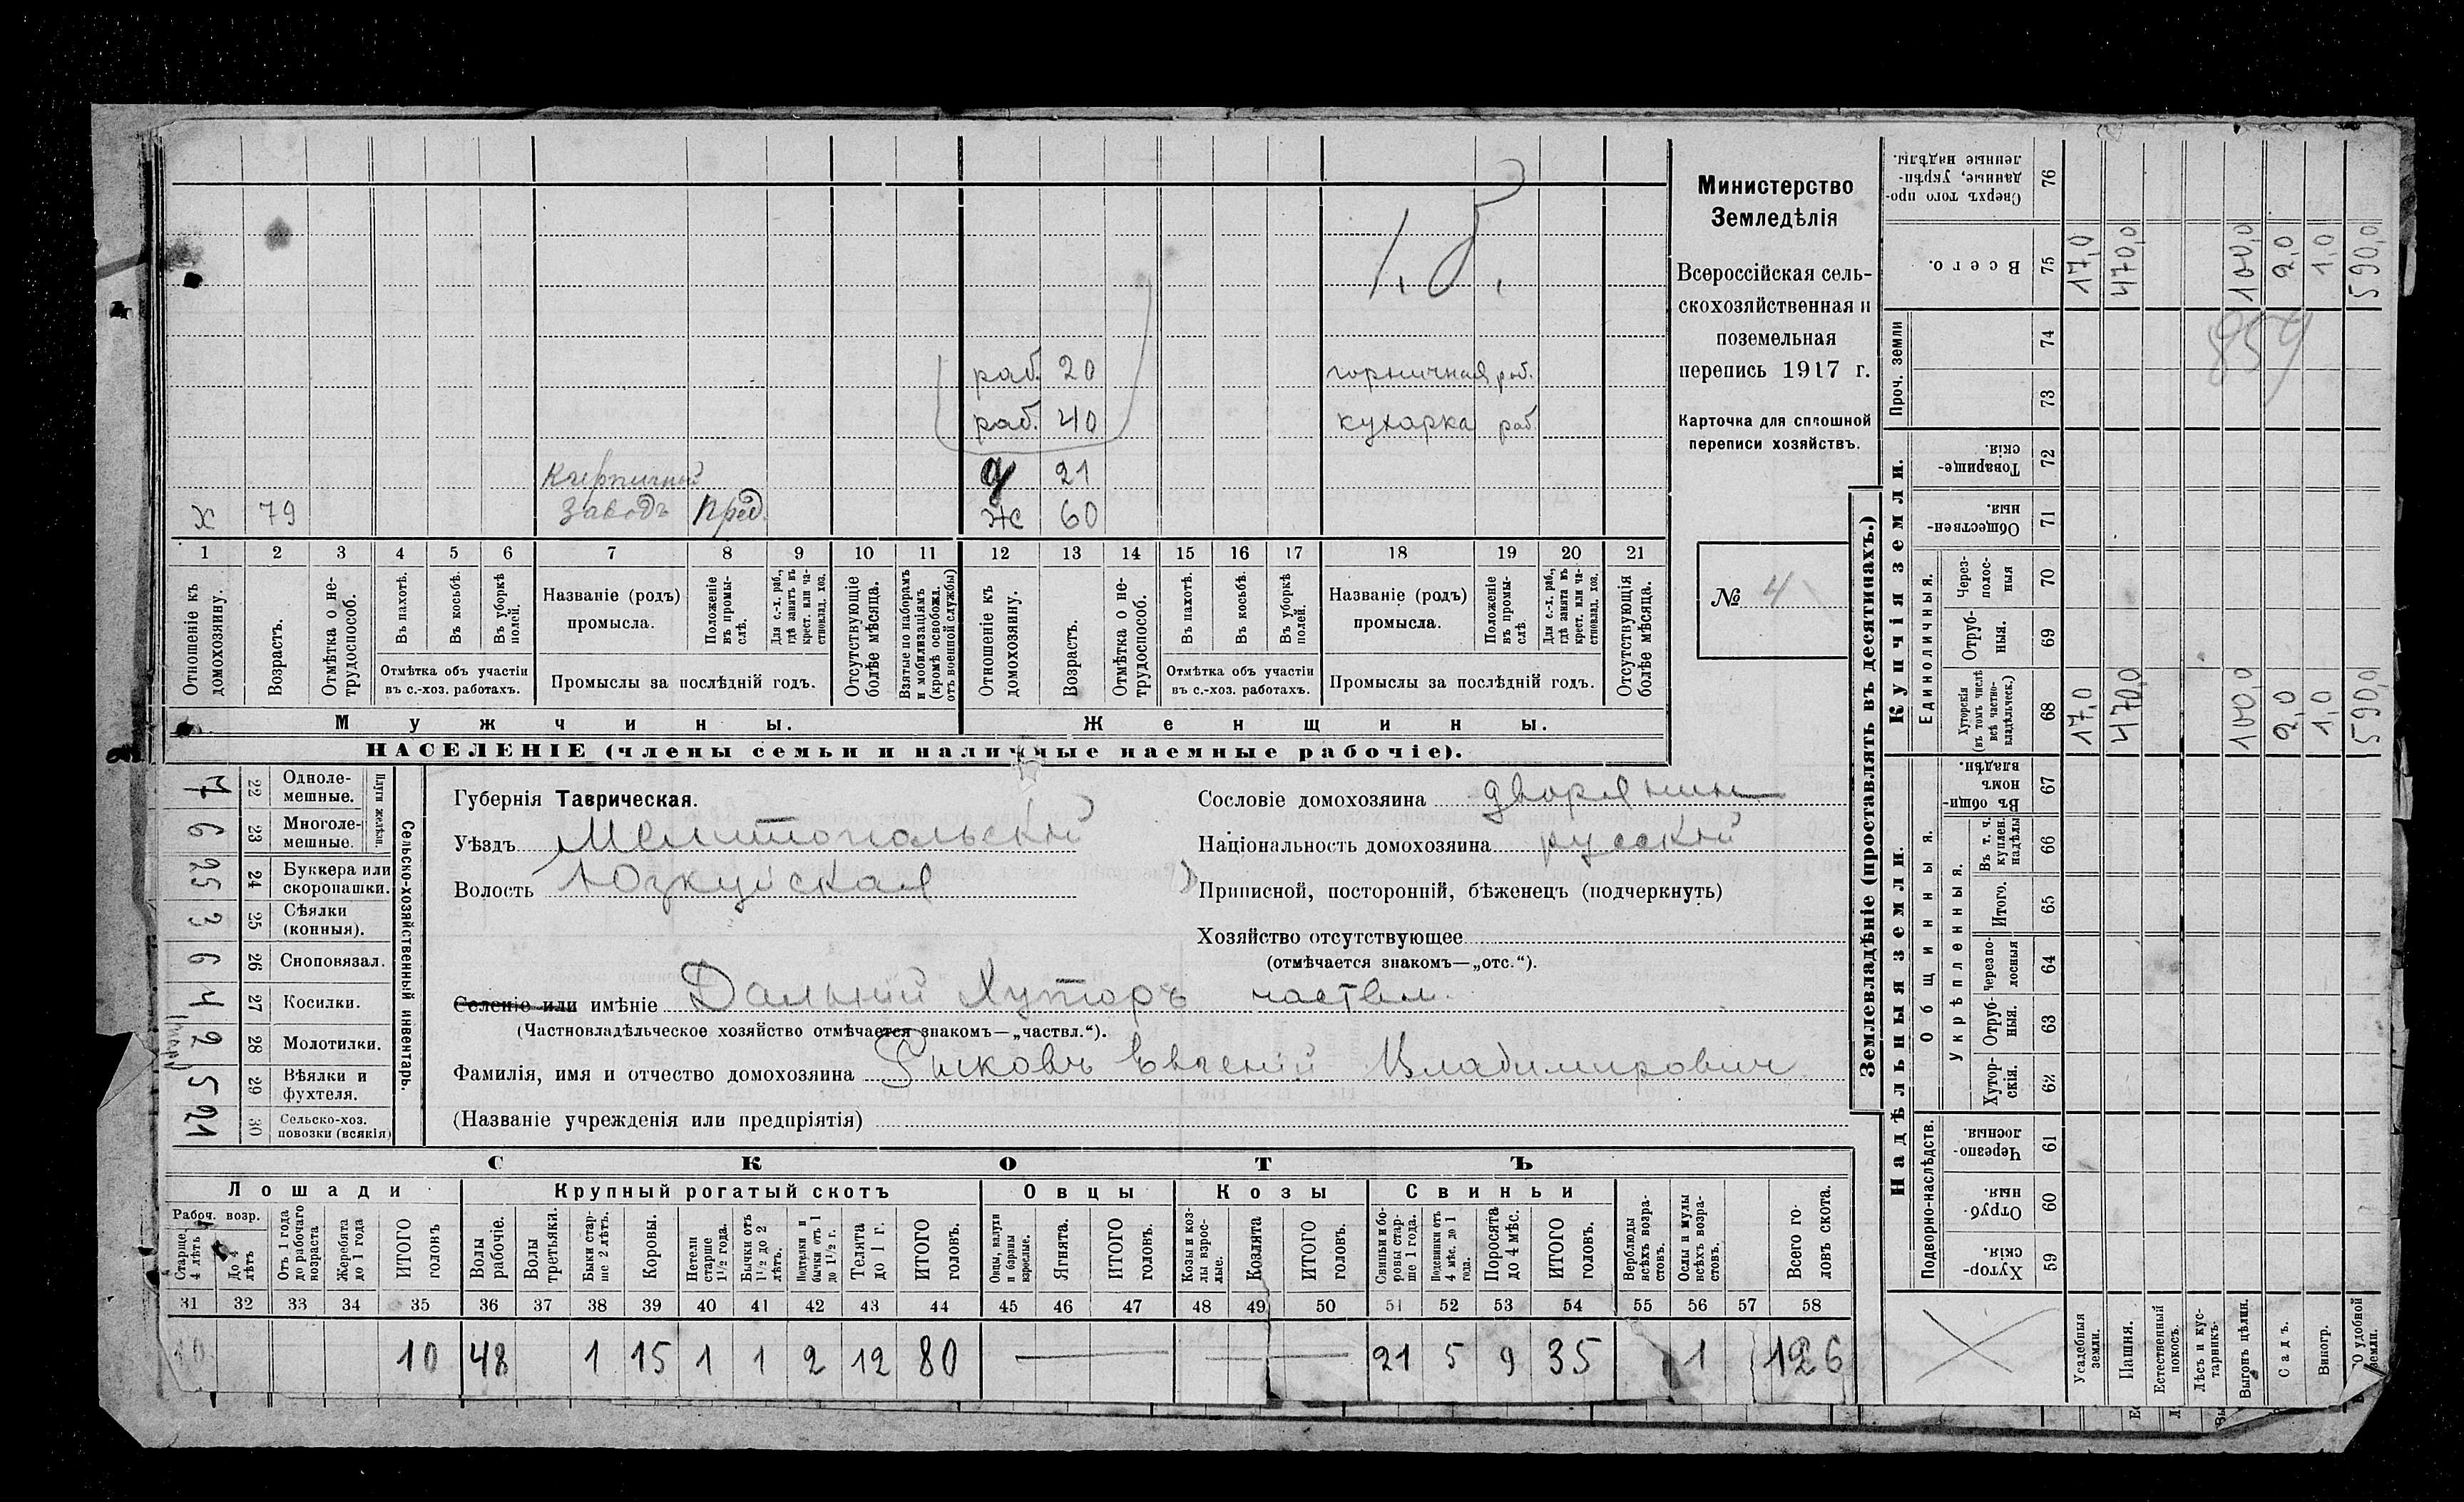 1,5,
раб. 20 горничная раб.
раб. 40 кухарка раб
Кирпичный д 21
х 79 заводъ пред. ж 60
1 2 3 4 5 6 7 8 9 10 11 12 13 14 15 16 17 18 19 20 21
Отношеніе къ домохозяину.
Возрастъ.
Отмѣтка о нетрудоспособ.
Въ пахотѣ.
Въ косьбѣ.
Въ уборкѣ полей.
Отмѣтка объ участіи въ с.-хоз. работахъ.
Названіе (родъ) промысла.
Положеніе въ промыслѣ.
Для с.-х. раб., гдѣ занатъ въ крест. или частновлад. хоз.
Промыслы за послѣдній годъ.
Отсутствующіе болѣе мѣсяца.
Взятые по наборамъ и мобилизаціямъ (кромѣ освобожд. отъ военной службы)
Отношеніе къ домохозяину.
Возрастъ.
Отмѣтка о нетрудоспособ.
Въ пахотѣ.
Въ косьбѣ.
Въ уборкѣ полей.
Отмѣтка объ участіи въ с.-хоз. работахъ.
Названіе (родъ) промысла.
Положеніе въ промыслѣ
Для с.-х. раб., гдѣ занята въ крест. или частновлад. хоз.
Промыслы за послѣдній годъ.
Отсутствующія болѣе мѣсяца.
Мужчины. Женщины.
НАСЕЛЕНІЕ (члены семьи и наличные наемные рабочіе).
Министерство
Земледѣлія
Всероссійская сель-
скохозяйственная и
поземельная
перепись 1917 г.
Карточка для сплошной
переписи хозяйствъ.
№ 4
Сельско-хозяйственный инвентарь.
Плуги желѣзн.
22 Одноле-мешные.
6 23 Многоле-мешные.
25 24 Буккера или скоропашки.
3 25 Сѣялки (конныя).
6 26 Сноповязал.
4 27 Косилки.
2 28 Молотилки.
5 29 Вѣялки и фухтеля.
21 30 Сельско-хоз. повозки (всякія)
Губернія Таврическая.
Уѣздъ Мелитопольскій
Волость Юзкуйская
Сословіе домохозяина дворянин
Національность домохозяина русскій
Приписной, посторонній, бѣженецъ (подчеркнуть)
Хозяйство отсутствующее
(отмѣчается знакомъ—„отс.“).
Селеніе или имѣніе Дальній Хуторъ частвл.
(Частновладѣльческое хозяйство отмѣчается знакомъ—„частвл.“).
Фамилія, имя и отчество домохозяина Рыковъ Евгеній Владимирович
(Названіе учрежденія или предпріятія)
СКОТЪ
Лошади Крупный рогатый скотъ Овцы Козы Свиньи
Рабоч. возр.
Старше 4 лѣтъ
До 4 лѣтъ
Отъ 1 года до рабочаго возраста
Жеребята до 1 года
ИТОГО головъ
Волы рабочіе.
Волы третьяки.
Быки старше 2 лѣтъ.
Коровы.
Нетели старше 1½ года.
Бычки отъ 1½ до 2 лѣтъ.
Подтелки и бычки отъ 1 до 1½ г.
Телята до 1 г.
ИТОГО головъ.
Овцы, валухи и бараны взрослые.
Ягнята.
ИТОГО головъ.
Козы и козлы взрослые.
Козлята
ИТОГО головъ.
Свиньи и боровы старше 1 года.
Подсвинки отъ 4 мѣс. до 1 года.
Поросята до 4 мѣс.
ИТОГО головъ.
Верблюды всѣхъ возрастовъ.
Ослы и мулы всѣхъ возрастовъ.
Всего головъ скота.
31 32 33 34 35 36 37 38 39 40 41 42 43 44 45 46 47 48 49 50 51 52 53 54 55 56 57 58
10 10 48 1 15 1 1 2 12 80 — — 21 5 9 35 1 126
Землевладѣніе (проставлять въ десятинахъ.)
Надѣльныя земли. Купчія земли. Проч. земли
Подворно-наслѣдств. Общинныя. Единоличныя.
Укрѣпленныя.
59 Хутор-скія.
60 Отруб-ныя.
61 Черезпо-лосныя.
62 Хутор-скія.
63 Отруб-ныя.
64 Черезпо-лосныя
65 Итого.
66 Въ т. ч. куплен. надѣлы
67 Въ общинномъ владѣн.
68 Хуторскія (въ томъ числѣ всѣ частно-владѣльческ.)
69 Отруб-ныя.
70 Через-полос-ныя
71 Обществен-ныя.
72 Товарище-скія.
73
74
75 Всего.
76 Сверхъ того проданные, укрѣпленные надѣлы.
Усадебныя земли. 17,0 17,0
Пашня. 470,0 470,0
Естественный покосъ.
Лѣсъ и кустарникъ.
Выгонъ цѣлин. 100,0 100,0
Садъ. 2,0 2,0
Виногр. 1,0 1,0
О удобной земли. 590,0 590,0
859